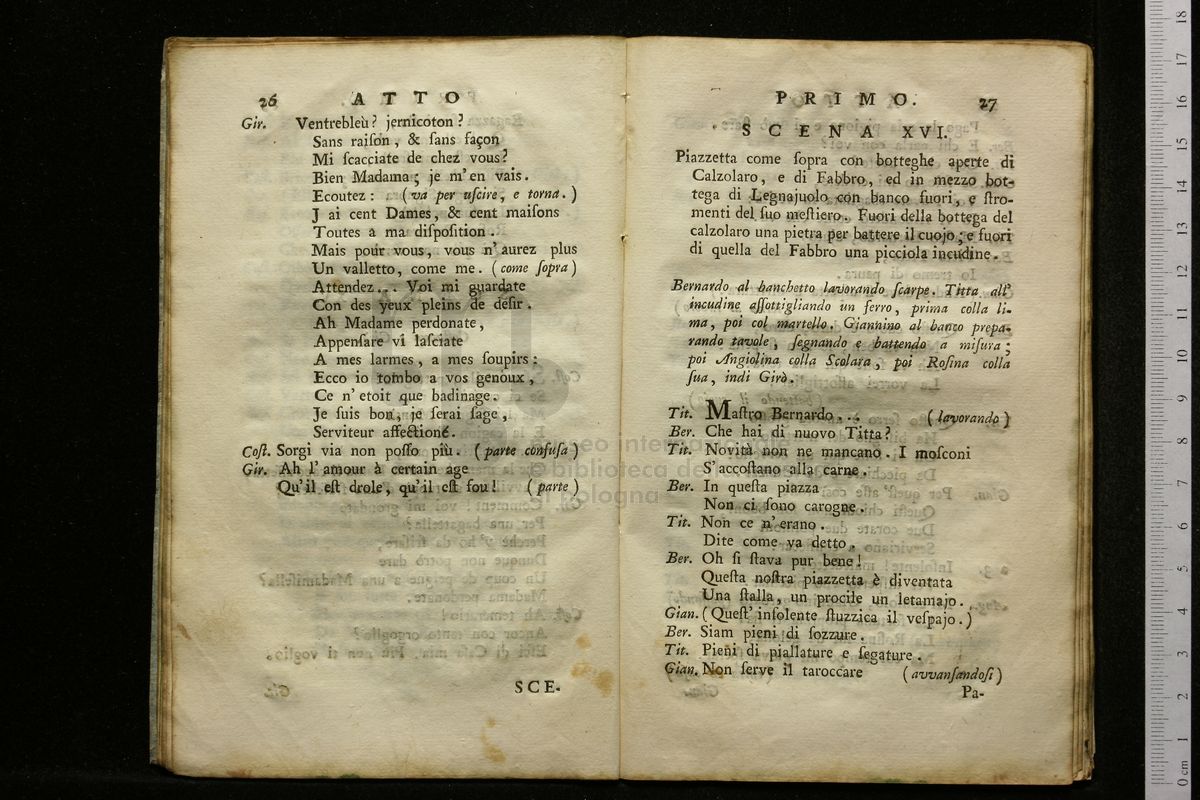 26 ATTO
Gir. Ventrebleù? jernicoton?
Sans raiſon, & ſans façon
Mi ſcacciate de chez vous?
Bien Madama; je m'en vais.
Ecoutez: (va per uſcire, e torna.)
J ai cent Dames, & cent maiſons
Toutes a ma diſpoſition.
Mais pour vous, vous n'aurez plus
Un valletto, come me. (come ſopra)
Attendez... Voi mi guardate
Con des yeux pleins de déſir.
Ah Madame perdonate,
Appenſare vi laſciate
A mes larmes, a mes ſoupirs:
Ecco io tombo a vos genoux,
Ce n'etoit que badinage.
Je ſuis bon, je ſerai ſage,
Serviteur affectioné.
Coſt. Sorgi via non poſſo più. (parte confuſa)
Gir. Ah l'amour à certain age
Qu'il eſt drole, qu'il eſt fou! (parte)
SCE-
PRIMO. 27
SCENA XVI.
Piazzetta come ſopra con botteghe aperte di
Calzolaro, e di Fabbro, ed in mezzo bot-
tega di Legnajuolo con banco fuori, e ſtro-
menti del ſuo meſtiero. Fuori della bottega del
calzolaro una pietra per battere il cuojo; e fuori
di quella del Fabbro una picciola incudine.
Bernardo al banchetto lavorando ſcarpe. Titta all'
incudine aſſottigliando un ferro, prima colla li-
ma, poi col martello. Giannino al banco prepa-
rando tavole, ſegnando e battendo a miſura;
poi Angiolina colla Scolara, poi Roſina colla
ſua, indi Girò.
Tit. Maſtro Bernardo... (lavorando)
Ber. Che hai di nuovo Titta?
Tit. Novità non ne mancano. I moſconi
S'accoſtano alla carne.
Ber. In queſta piazza
Non ci ſono carogne.
Tit. Non ce n'erano.
Dite come va detto.
Ber. Oh ſi ſtava pur bene!
Queſta noſtra piazzetta è diventata
Una ſtalla, un procile un letamajo.
Gian. (Queſt' inſolente ſtuzzica il veſpajo.)
Ber. Siam pieni di ſozzure.
Tit. Pieni di piallature e ſegature.
Gian. Non ſerve il taroccare (avvanſandoſi)
Pa-